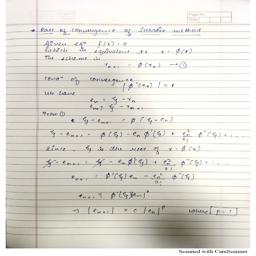 * Rate of convergence of Iterative method
Given eqn f(x) = 0
which is equivalent to x = φ(x)
The scheme is
xₙ₊₁ = φ(xₙ) → ①
of convergence
|φ'(xₙ)| < 1
we have
eₙ = ξ - xₙ
eₙ₊₁ = ξ - xₙ₊₁
From ①
ξ - eₙ₊₁ = φ(ξ - eₙ)
ξ - eₙ₊₁ = φ(ξ) - eₙ φ'(ξ) + eₙ²/2! φ''(ξ) + ...
Since ξ is the root of x = φ(x)
ξ - eₙ₊₁ = ξ - eₙ φ'(ξ) + eₙ²/2! φ''(ξ) + ...
eₙ₊₁ = φ'(ξ) eₙ - eₙ²/2! φ''(ξ)
eₙ₊₁ φ'(ξ) eₙ
⇒ |eₙ₊₁| = c |eₙ|ᵖ where [p = 1]
Scanned with CamScanner